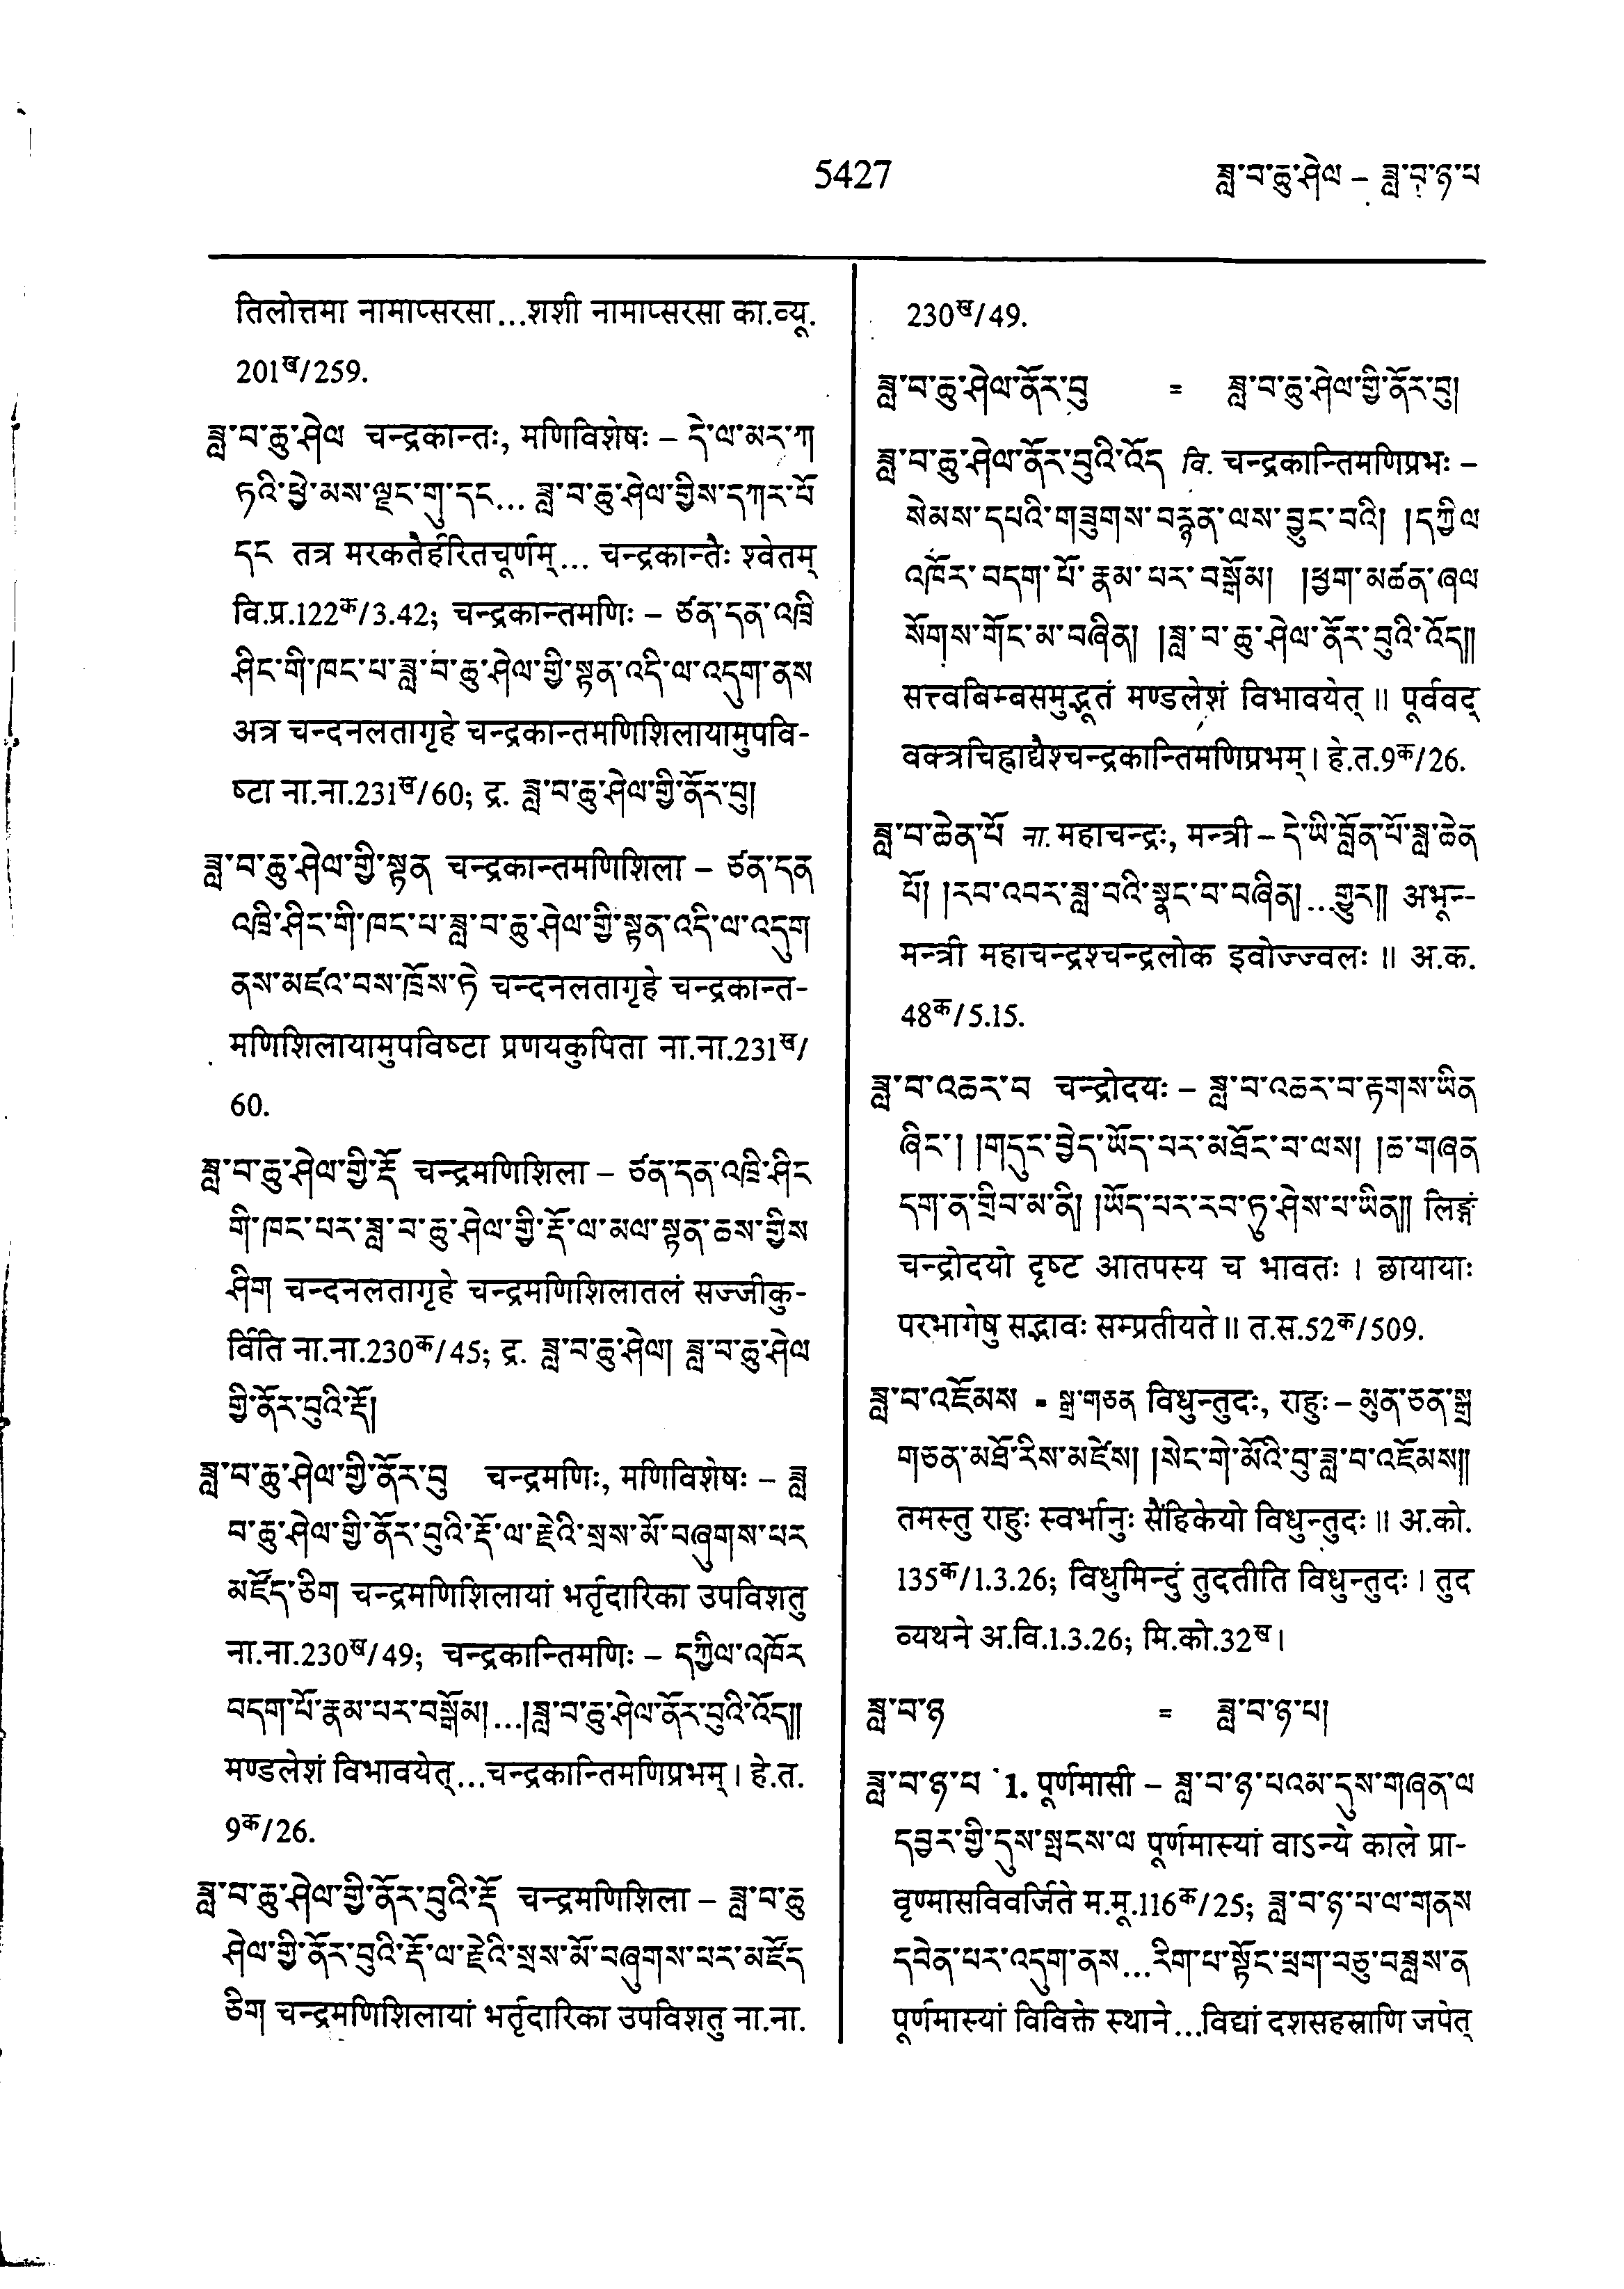 5427
ཟླ་བ་ཆུ་ཤེལ – ཟླ་བ་ཉ་པ
तिलोत्तमा नामाप्सरसा...शशी नामाप्सरसा का.व्यू.
201ख/259.
ཟླ་བ་ཆུ་ཤེལ चन्द्रकान्तः, मणिविशेषः – དེ་ལ་མར་ཀ
ཏའི་ཕྱེ་མས་ལྗང་གུ་དང... ཟླ་བ་ཆུ་ཤེལ་གྱིས་དཀར་པོ
དང तत्र मरकतैर्हरितचूर्णम्... चन्द्रकान्तैः श्वेतम्
वि.प्र.122क/3.42; चन्द्रकान्तमणिः – ཙན་དན་འཁྲི
ཤིང་གི་ཁང་པ་ཟླ་བ་ཆུ་ཤེལ་གྱི་སྟན་འདི་ལ་འདུག་ནས
अत्र चन्दनलतागृहे चन्द्रकान्तमणिशिलायामुपवि-
ष्टा ना.ना.231ख/60; द्र. ཟླ་བ་ཆུ་ཤེལ་གྱི་ནོར་བུ།
ཟླ་བ་ཆུ་ཤེལ་གྱི་སྟན चन्द्रकान्तमणिशिला – ཙན་དན
འཁྲི་ཤིང་གི་ཁང་པ་ཟླ་བ་ཆུ་ཤེལ་གྱི་སྟན་འདི་ལ་འདུག
ནས་མཛའ་བས་ཁྲོས་ཏེ चन्दनलतागृहे चन्द्रकान्त-
मणिशिलायामुपविष्टा प्रणयकुपिता ना.ना.231ख/
60.
ཟླ་བ་ཆུ་ཤེལ་གྱི་རྡོ चन्द्रमणिशिला – ཙན་དན་འཁྲི་ཤིང
གི་ཁང་པར་ཟླ་བ་ཆུ་ཤེལ་གྱི་རྡོ་ལ་མལ་སྟན་ཆས་གྱིས
ཤིག चन्दनलतागृहे चन्द्रमणिशिलातलं सज्जीकु-
र्विति ना.ना.230क/45; द्र. ཟླ་བ་ཆུ་ཤེལ། ཟླ་བ་ཆུ་ཤེལ
གྱི་ནོར་བུའི་རྡོ།
ཟླ་བ་ཆུ་ཤེལ་གྱི་ནོར་བུ चन्द्रमणिः, मणिविशेषः – ཟླ
བ་ཆུ་ཤེལ་གྱི་ནོར་བུའི་རྡོ་ལ་རྗེའི་སྲས་མོ་བཞུགས་པར
མཛོད་ཅིག चन्द्रमणिशिलायां भर्तृदारिका उपविशतु
ना.ना.230ख/49; चन्द्रकान्तिमणिः – དཀྱིལ་འཁོར
བདག་པོ་རྣམ་པར་བསྒོམ།...།ཟླ་བ་ཆུ་ཤེལ་ནོར་བུའི་འོད།།
मण्डलेशं विभावयेत्...चन्द्रकान्तिमणिप्रभम्। हे.त.
9क/26.
ཟླ་བ་ཆུ་ཤེལ་གྱི་ནོར་བུའི་རྡོ चन्द्रमणिशिला – ཟླ་བ་ཆུ
ཤེལ་གྱི་ནོར་བུའི་རྡོ་ལ་རྗེའི་སྲས་མོ་བཞུགས་པར་མཛོད
ཅིག चन्द्रमणिशिलायां भर्तृदारिका उपविशतु ना.ना.
230ख/49.
ཟླ་བ་ཆུ་ཤེལ་ནོར་བུ = ཟླ་བ་ཆུ་ཤེལ་གྱི་ནོར་བུ།
ཟླ་བ་ཆུ་ཤེལ་ནོར་བུའི་འོད वि. चन्द्रकान्तिमणिप्रभः –
སེམས་དཔའི་གཟུགས་བརྙན་ལས་བྱུང་བའི། །དཀྱིལ
འཁོར་བདག་པོ་རྣམ་པར་བསྒོམ། །ཕྱག་མཚན་ཞལ
སོགས་གོང་མ་བཞིན། །ཟླ་བ་ཆུ་ཤེལ་ནོར་བུའི་འོད།།
सत्त्वबिम्बसमुद्भूतं मण्डलेशं विभावयेत्॥ पूर्ववद्
वक्त्रचिह्नाद्यैश्चन्द्रकान्तिमणिप्रभम्। हे.त.9क/26.
ཟླ་བ་ཆེན་པོ ना. महाचन्द्रः, मन्त्री – དེ་ཡི་བློན་པོ་ཟླ་ཆེན
པོ། །རབ་འབར་ཟླ་བའི་སྣང་བ་བཞིན།...གྱུར།། अभून्-
मन्त्री महाचन्द्रश्चन्द्रलोक इवोज्ज्वलः॥ अ.क.
48क/5.15.
ཟླ་བ་འཆར་བ चन्द्रोदयः – ཟླ་བ་འཆར་བ་རྟགས་ཡིན
ཞིང་། །གདུང་བྱེད་ཡོད་པར་མཐོང་བ་ལས། །ཆ་གཞན
དག་ན་གྲིབ་མ་ནི། །ཡོད་པར་རབ་ཏུ་ཤེས་པ་ཡིན།། लिङ्गं
चन्द्रोदयो दृष्ट आतपस्य च भावतः। छायायाः
परभागेषु सद्भावः सम्प्रतीयते॥ त.स.52क/509.
ཟླ་བ་འཇོམས = སྒྲ་གཅན विधुन्तुदः, राहुः – མུན་ཅན་སྒྲ
གཅན་མཐོ་རིས་མཛེས། །སེང་གེ་མོའི་བུ་ཟླ་བ་འཇོམས།།
तमस्तु राहुः स्वर्भानुः सैंहिकेयो विधुन्तुदः॥ अ.को.
135क/1.3.26; विधुमिन्दुं तुदतीति विधुन्तुदः। तुद
व्यथने अ.वि.1.3.26; मि.को.32ख।
ཟླ་བ་ཉ = ཟླ་བ་ཉ་པ།
ཟླ་བ་ཉ་པ 1. पूर्णमासी – ཟླ་བ་ཉ་པའམ་དུས་གཞན་ལ
དབྱར་གྱི་དུས་སྤངས་ལ पूर्णमास्यां वाऽन्ये काले प्रा-
वृण्मासविवर्जिते म.मू.116क/25; ཟླ་བ་ཉ་པ་ལ་གནས
དབེན་པར་འདུག་ནས...རིག་པ་སྟོང་ཕྲག་བཅུ་བཟླས་ན
पूर्णमास्यां विविक्ते स्थाने...विद्यां दशसहस्राणि जपेत्